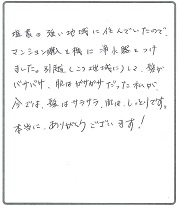 塩素の強い地域に住んでいたので
マンション購入を機に浄水器をつけ
ました。引越（この地域に）して、髪が
バサバサ、肌はガサガサだった私が
今では、髪はサラサラ、肌は、しっとりです。
本当に、ありがとうございます！